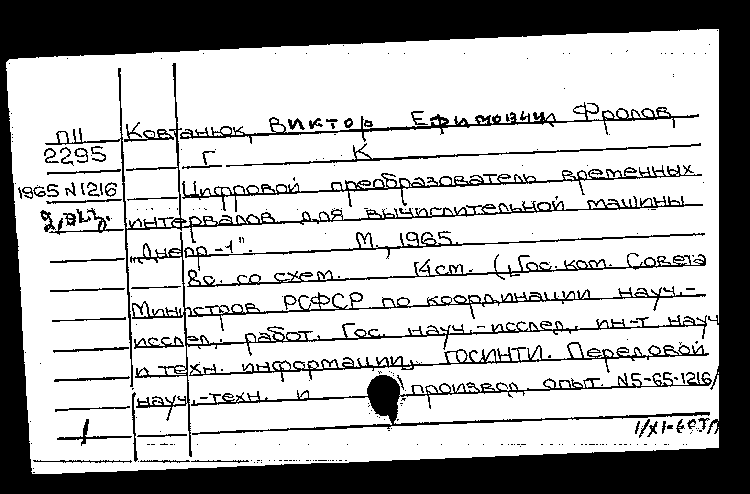 П11 Ковтанюк, Виктор Ефимович Фролов,
2295 Г. К
1965 N1216 Цифровой преобразователь временных
2 экз. интервалов для вычислительной машины
„Днепр-1". М., 1965.
8с. со схем. (4см. (Гос. ком. Совета
Министров РСФСР по координации науч.-
исслед. работ. Гос. науч.-исслед. ин-т науч
и техн. информации, ГОСИНТИ. Передовой
науч.-техн. и производ. опыт. N5-65-1216/
1